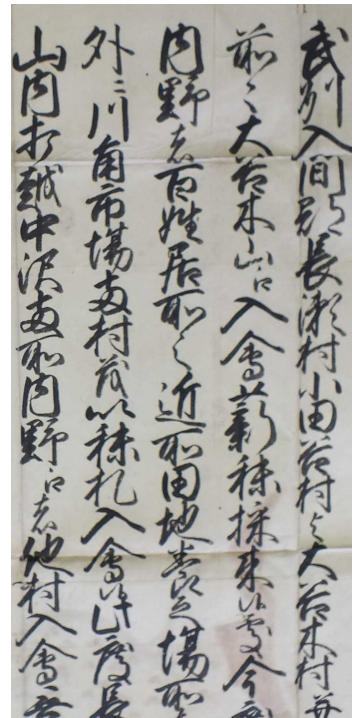 武州入間郡長瀬村小田谷村与大谷木村并
前々大谷木山江入会薪秣採来候処今度
内野者百姓居所之近所田地養之場所
外ニ川角市場両村茂以秣札入会候此度長
山内打越中沢両所内野江者他村入会